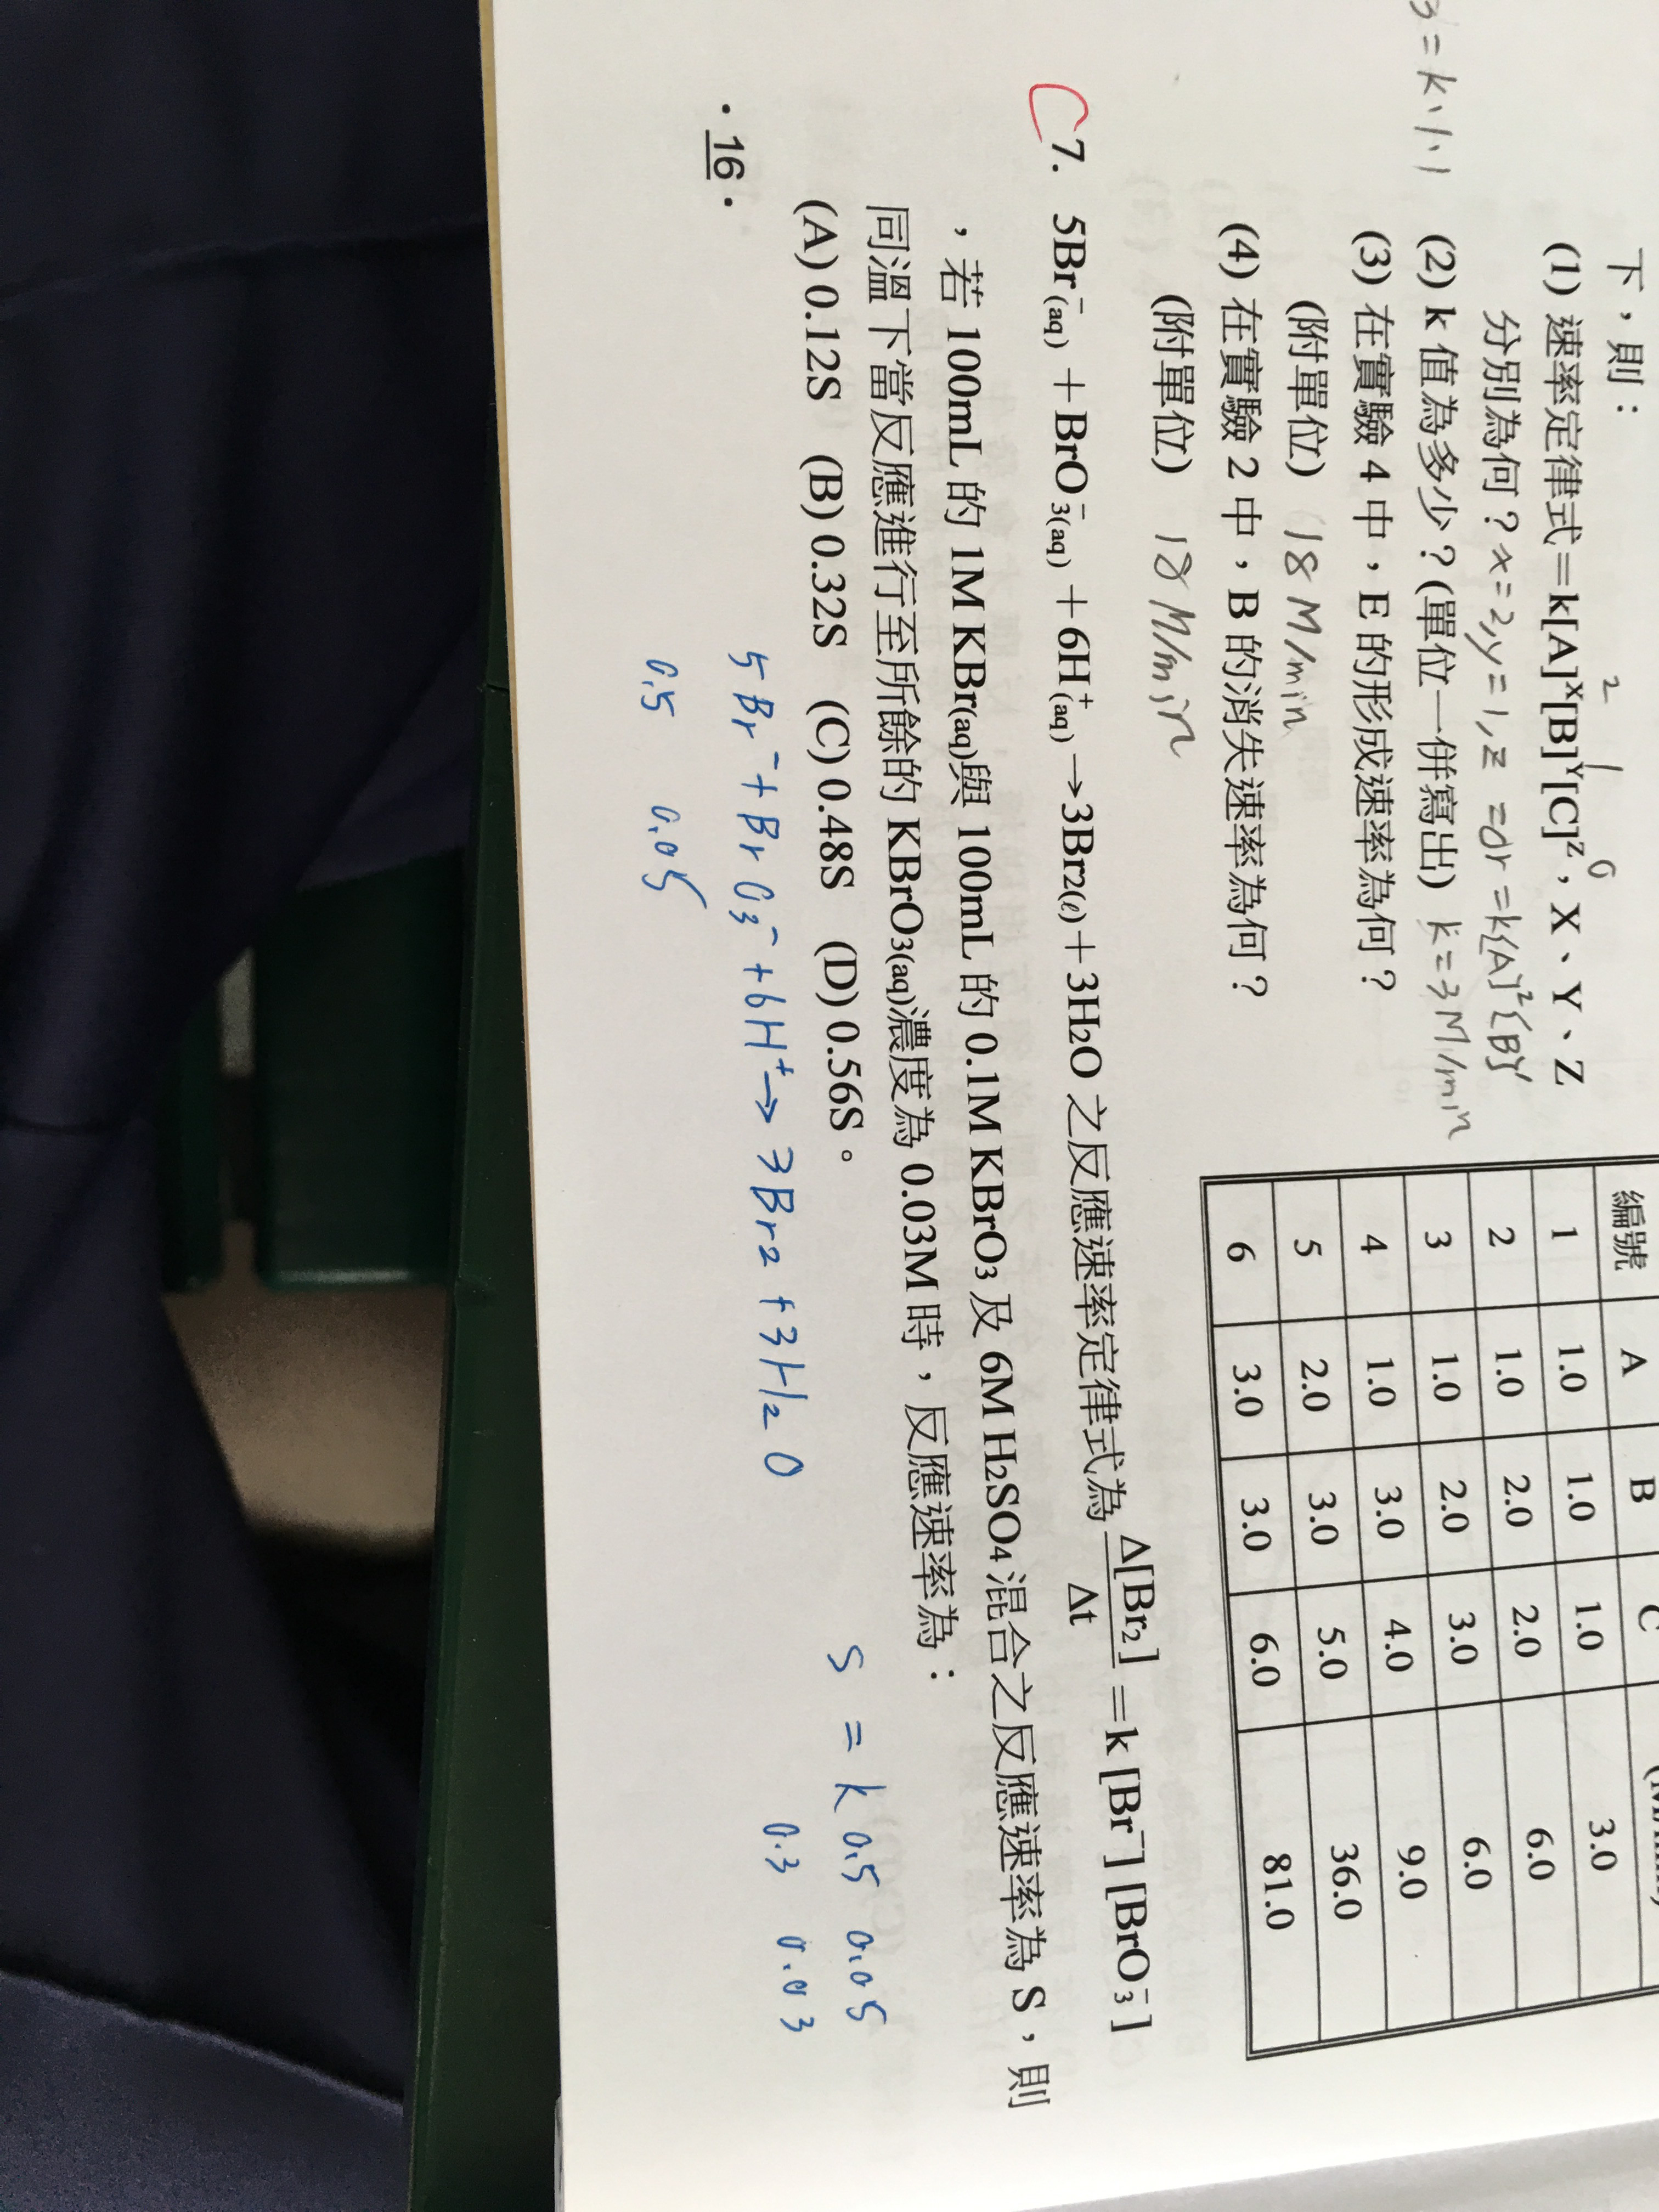 3 = k · 1 · 1
下，則：
(1) 速率定律式＝k[A]ˣ[B]ʸ[C]ᶻ，X、Y、Z
2 1 0
分別為何？x=2, y=1, z=0 r=k[A]²[B]¹
(2) k 值為多少？(單位一併寫出) k=3 M/min
(3) 在實驗 4 中，E 的形成速率為何？
(附單位) 18 M/min
(4) 在實驗 2 中，B 的消失速率為何？
(附單位) 18 M/min
編號 A B C
1 1.0 1.0 1.0 3.0
2 1.0 2.0 2.0 6.0
3 1.0 2.0 3.0 6.0
4 1.0 3.0 4.0 9.0
5 2.0 3.0 5.0 36.0
6 3.0 3.0 6.0 81.0
C 7. 5Br⁻(aq)＋BrO₃⁻(aq)＋6H⁺(aq)→3Br₂(ℓ)＋3H₂O 之反應速率定律式為 Δ[Br₂]/Δt ＝k [Br⁻] [BrO₃⁻]
，若 100mL 的 1M KBr(aq)與 100mL 的 0.1M KBrO₃ 及 6M H₂SO₄ 混合之反應速率為 S，則
同溫下當反應進行至所餘的 KBrO₃(aq)濃度為 0.03M 時，反應速率為：
(A) 0.12S (B) 0.32S (C) 0.48S (D) 0.56S。
S = k 0.5 0.05
0.3 0.03
5Br⁻ + BrO₃⁻ + 6H⁺ → 3Br₂ + 3H₂O
0.5 0.05
· 16 ·